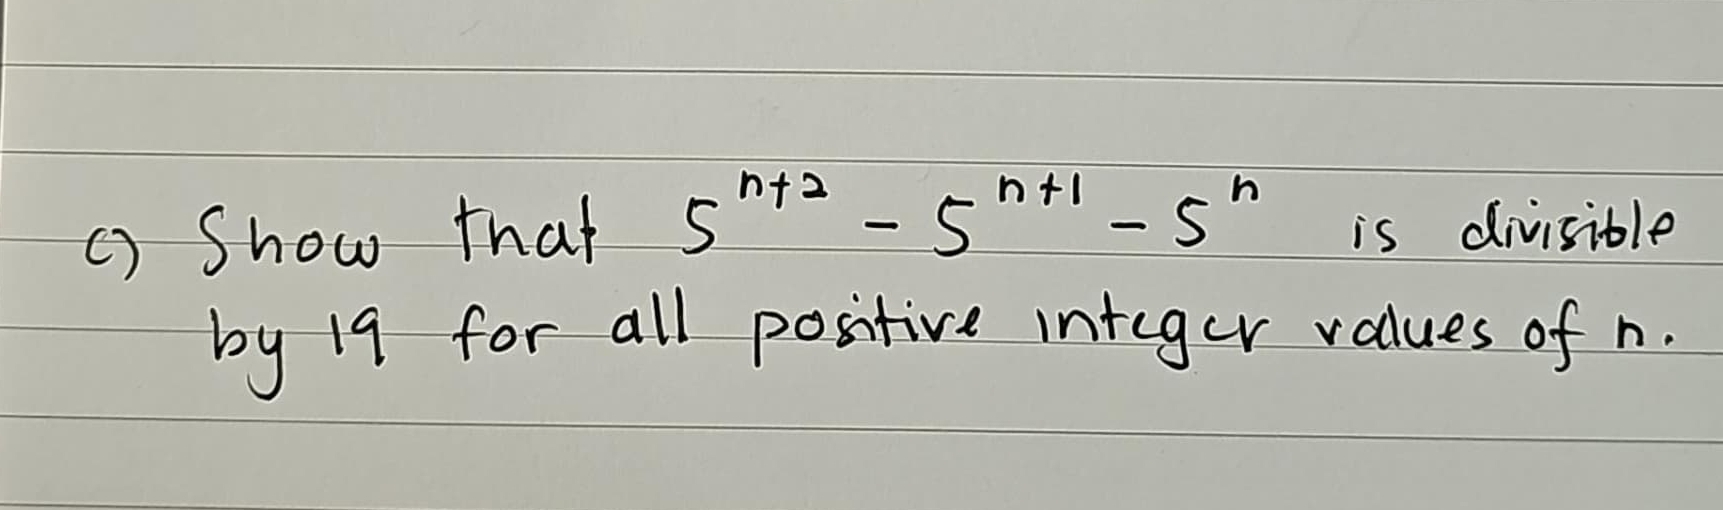 c) Show that 5^{n+2} - 5^{n+1} - 5^n is divisible
by 19 for all positive integer values of n.